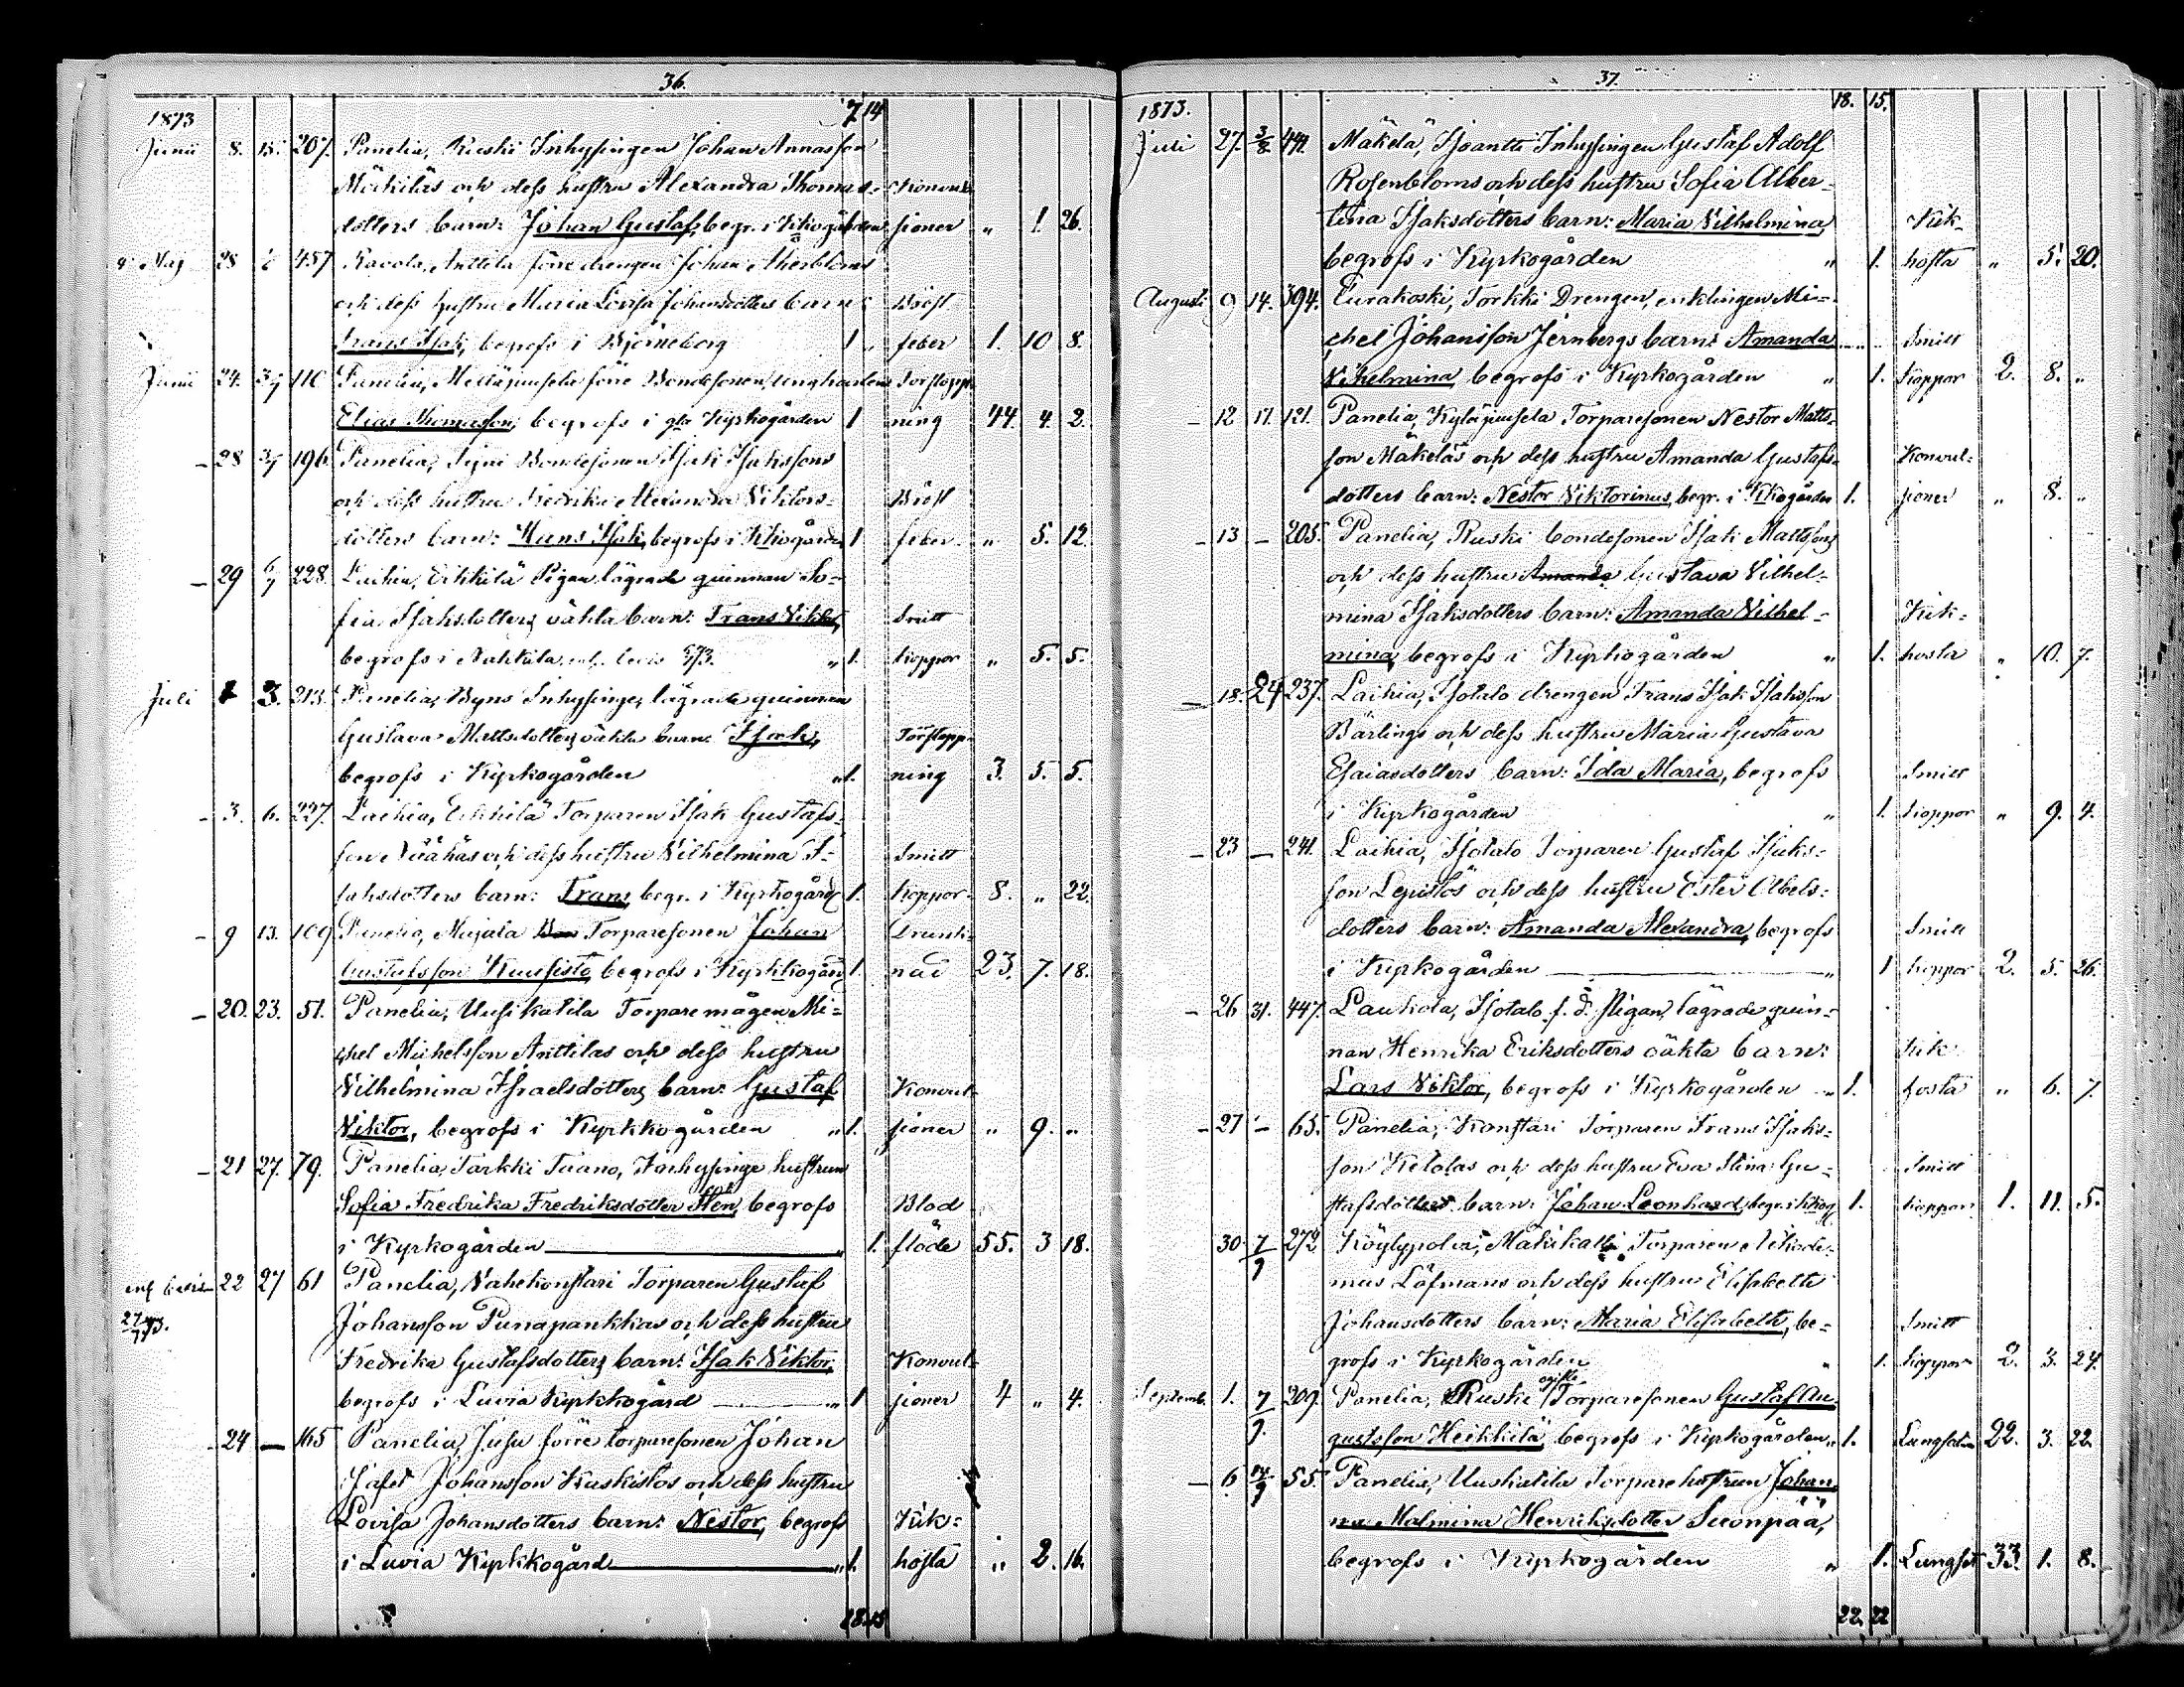 36.
1873 7 14
Junii 8. 15. 207. Panelia, Ruski Inhysingen Johan Annasson
Mäkiläs och dess hustru Alexandra Thomas- Konvul-
dotters barn: Johan Gustaf, begr. i Kkogården sioner „ 1. 26.
Maj 28 457 Ravola, Anttila förre drengen Johan Åkerbloms
och dess hustru Maria Lovisa Johansdotters barn: Bröst
Frans Isak, begrofs i Björneborg 1 feber 1. 10 8.
Junii 24. 110 Panelia, Mellajuusela förre Bondesonen, ungkarlen Förstopp-
Elias Thomasson, begrofs i gla Kyrkogården 1 ning 44. 4. 2.
- 28 196 Panelia, Bondesonen Isak Isakssons
och dess hustru Fredrika Alexandra Viktors- Bröst
dotters barn: Hans Isak, begrofs i Kkogården 1 feber „ 5. 12.
- 29 228. Laihia, Erkkilä Pigan lägrade quinnan So-
fia Isaksdotters oäkta barn: Frans Viktor, Smitt
begrofs i Nakkila „ 1. koppor „ 5. 5.
Juli 3. 213. Panelia, Byns Inhysinge, lägrade quinnan
Gustava Mattsdotters oäkta barn: Isak, Förstopp-
begrofs i Kyrkogården „ 1. ning 3. 5. 5.
- 3. 6. 227. Laihia, Erkkilä Torparen Isak Gustafs-
son och dess hustru Vilhelmina I- Smitt
saksdotters barn: Frans, begr. i Kyrkogård 1. koppor 8. „ 22.
- 9 13. 109 Panelia, Maijala Torparesonen Johan Drunk-
Gustafsson Kuusisto, begrofs i Kyrkkogård 1. nad 23. 7. 18.
- 20. 23. 51. Panelia, Uusikatila Torparemågen Mi-
chel Michelsson Anttilas och dess hustru
Vilhelmina Israelsdotters barn: Gustaf Konvul-
Viktor, begrofs i Kyrkkogården „ 1. sioner „ 9. „
- 21 27. 79. Panelia Tarkki Tuano, Inhysinge hustrun
Sofia Fredrika Fredriksdotter Stén, begrofs Blod
i Kyrkogården „ 1. flöde 55. 3 18.
22 27 61 Panelia, Vahekonstari Torparen Gustaf
Johansson Punapankkas och dess hustru
Fredrika Gustafsdotters barn: Isak Viktor, Konvul-
begrofs i Luvia Kyrkkogård „ 1 sioner 4 „ 4.
- 24 — 165 Panelia, Jusu förre torparesonen Johan
Jafet Johansson Kuskistos och dess hustru
Lovisa Johansdotters barn: Nestor, begrofs Kik-
i Luvia Kyrkkogård „ 1. hosta „ 2. 16.
18. 15
37.
1873. 18. 15.
Juli 27. 3/8 442. Mäkelä, Isoantti Inhysingen Gustaf Adolf
Rosenbloms och dess hustru Sofia Alber-
tina Isaksdotters barn: Maria Vilhelmina, Kik-
begrofs i Kyrkogården „ 1. hosta „ 5. 20.
Augusti 9 14. 394. Eurakoski, Torkki Drengen, enklingen Mi-
chel Johansson Jernbergs barn: Amanda Smitt
Vilhelmina begrofs i Kyrkogården „ 1. koppor 2. 8. „
- 12 17. 121. Panelia, Kyläjuusela Torparesonen Nestor Matts-
son Mäkeläs och dess hustru Amanda Gustafs- Konvul-
dotters barn: Nestor Viktorinus, begr. i Kkogården 1. sioner „ 8. „
- 13 — 205. Panelia, Ruski bondesonen Isak Mattsons
och dess hustru Amanda Gustava Vilhel-
mina Isaksdotters barn: Amanda Vilhel- Kik-
mina, begrofs i Kyrkogården „ 1. hosta „ 10. 7.
- 18. 24 237. Laihia, Isotalo drengen Frans Isak Isaksson
Bärlings och dess hustru Maria Gustava
Esaiasdotters barn: Ida Maria, begrofs Smitt
i Kyrkogården „ 1. koppor „ 9. 4.
- 23 — 241. Laihia, Isotalo Torparen Gustaf Isaks-
son Lepistös och dess hustru Ester Abels-
dotters barn: Amanda Alexandra, begrofs Smitt
i Kyrkogården „ 1 koppor 2. 5. 26.
- 26 31. 447. Laukola, Isotalo f. d. Pigan, lägrade quin-
nan Henrika Eriksdotters oäkta barn: Kik-
Lars Viktor, begrofs i Kyrkogården 1. hosta „ 6. 7.
- 27 — 63. Panelia, Konstari Torparen Frans Isaks-
son Ketolas och dess hustru Eva Stina Gu- Smitt
stafsdotters barn: Johan Leonhard, begr. i kkog 1. koppor 1. 11. 5.
30. 7/9 272 Köylypolvi, Mäkikalli Torparen Nikode-
mus Löfmans och dess hustru Elisabeth
Johansdotters barn: Maria Elisabeth, be- Smitt
grofs i Kyrkogården „ 1. koppor 2. 3. 27.
Septemb. 1. 7/9. 209. Panelia, Ruski ogifte Torparesonen Gustaf Au-
gustsson Heikkilä, begrofs i Kyrkogården „ 1. Lungsotin 22. 3. 22.
- 6 14/9 55. Panelia, Uusikatila Torparehustrun Johan-
na Malmina Henriksdotter Suonpää,
begrofs i Kyrkogården „ 1. Lungsot 33. 1. 8.
22. 22